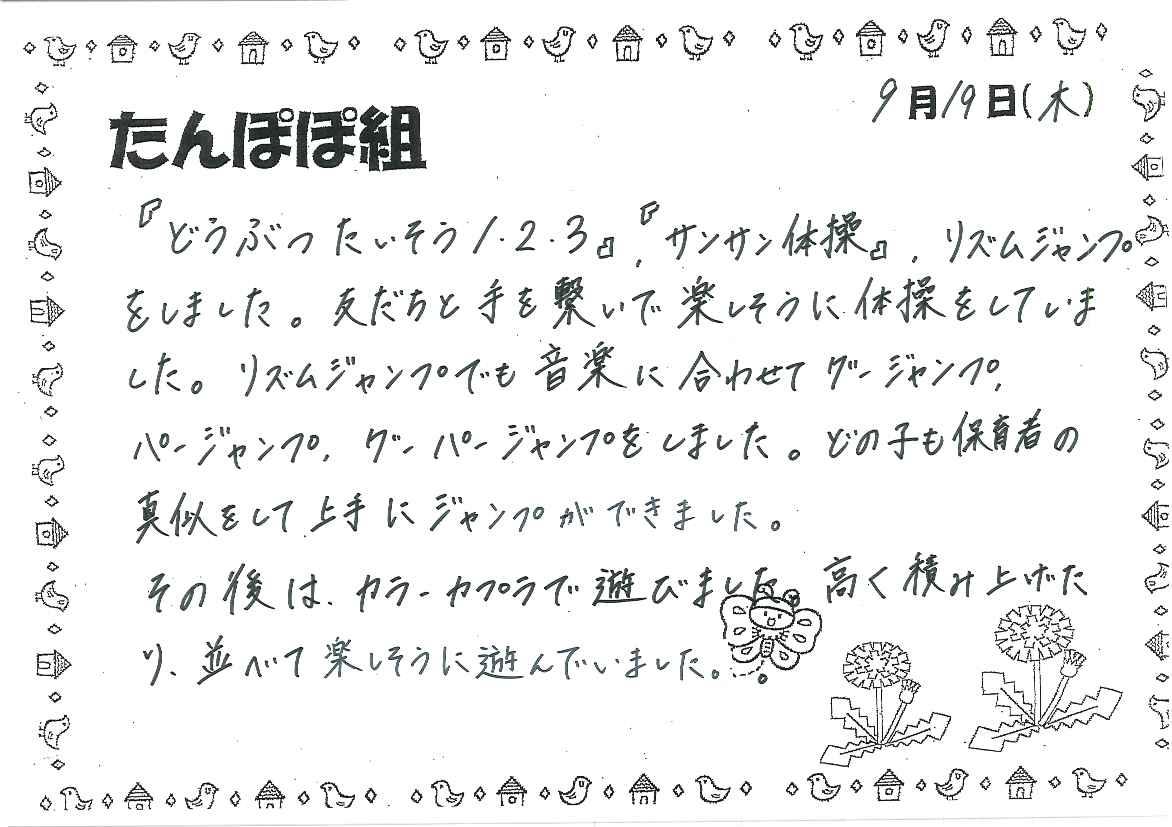 9月19日(木)
たんぽぽ組
『どうぶつたいそう1・2・3』,『サンサン体操』,リズムジャンプ
をしました。友だちと手を繋いで楽しそうに体操をしていま
した。リズムジャンプでも音楽に合わせてグージャンプ,
パージャンプ,グーパージャンプをしました。どの子も保育者の
真似をして上手にジャンプができました。
その後は、カラーカプラで遊びました。高く積み上げた
り、並べて楽しそうに遊んでいました。